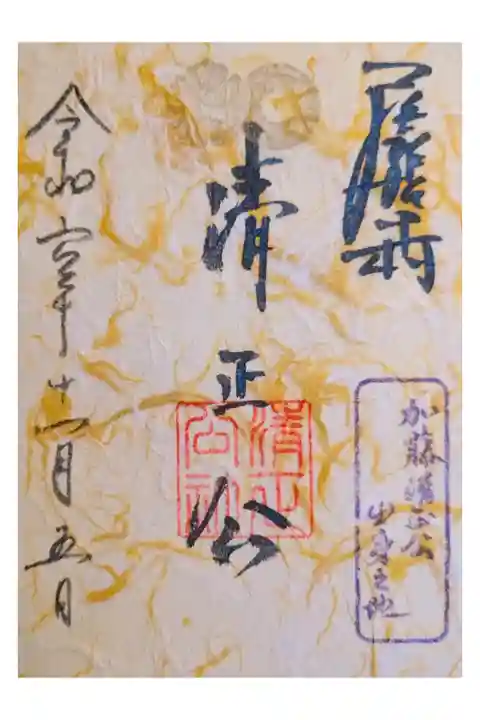 清正公
清正公印
加藤清正公
出身之地
令和六年十一月五日